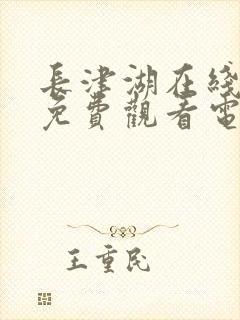 長津湖在綫
免費觀看電
王重民